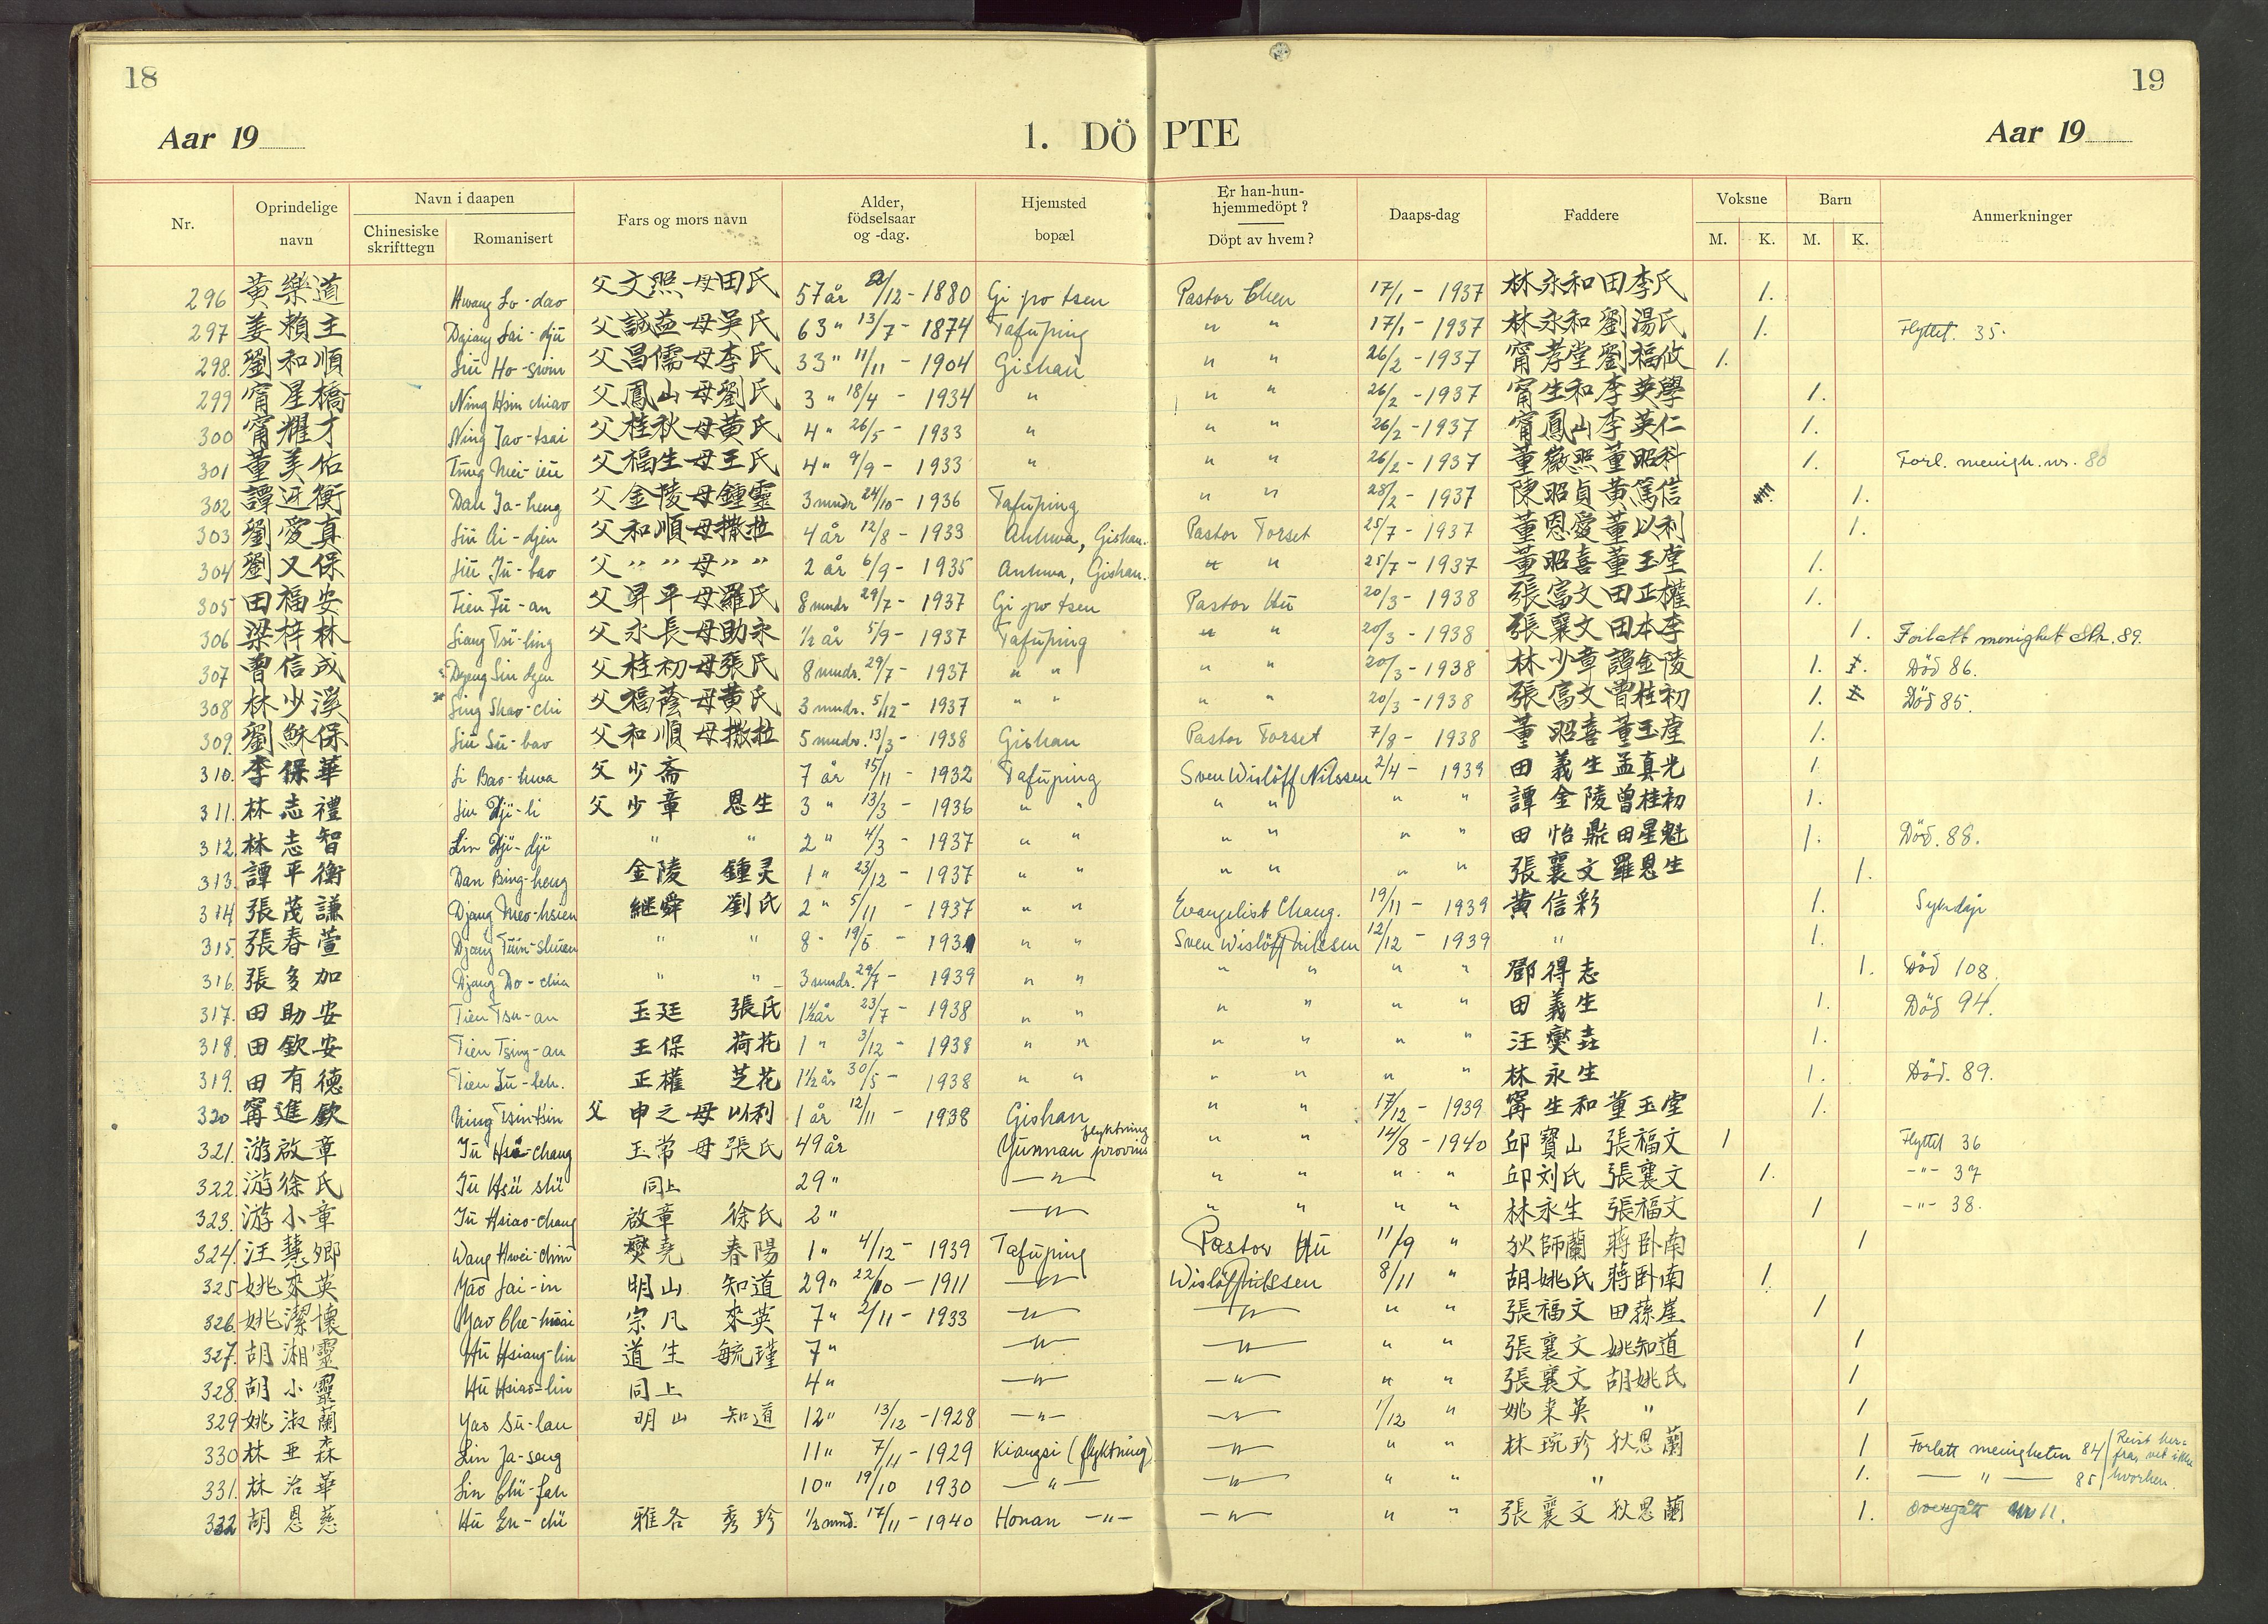 18
19
Aar 19
1. DÖPTE
Aar 19
Nr. | Oprindelige navn | Navn i daapen: Chinesiske skrifttegn | Romanisert | Fars og mors navn | Alder, födselsaar og -dag. | Hjemsted bopæl | Er han-hun-hjemmedöpt? Döpt av hvem? | Daaps-dag | Faddere | Voksne M. K. | Barn M. K. | Anmerkninger
296 黃樂道 Hwang Lo-dao 父文照母田氏 57 år /12-1880 Gi po tsen Pastor Chen 17/1-1937 林永和田李氏 1.
297 姜賴主 Dziang Lai-djü 父誠益母吳氏 63 " 13/7-1874 Tafuping " " 17/1-1937 林永和劉湯氏 1. Flyttet. 35.
298. 劉和順 Liü Ho-swin 父昌儒母李氏 33 " 11/11-1904 Gishan " " 26/2-1937 甯孝堂劉福攸 1.
299 甯星橋 Ning Hsin chiao 父鳳山母劉氏 3 " 18/4-1934 " " " 26/2-1937 甯生和李英學 1.
300 甯耀才 Ning Jao-tsai 父桂秋母黃氏 4 " 26/5-1933 " " " 26/2-1937 甯鳳山李英仁 1.
301 董美佑 Tung Mei-ieu 父福生母王氏 4 " 9/9-1933 " " " 26/2-1937 董徽照董昭科 1. Forl. menigh. nr. 80
302 譚迓衡 Dan Ja-heng 父金陵母鍾靈 3 mndr 24/10-1936 Tafuping " " 28/2-1937 陳昭貞黃篤信 1.
303 劉愛真 Liü Ai-djen 父和順母撒拉 4 år 12/8-1933 Anhwa, Gishan. Pastor Torset 25/7-1937 董恩愛董以利 1.
304 劉又保 Liü Jü-bao 父""母"" 2 år 6/9-1935 Anhwa, Gishan. " " 25/7-1937 董昭喜董玉堂 1.
305 田福安 Tien Fü-an 父昇平母羅氏 8 mndr 29/7-1937 Gi po tsen Pastor Hü 20/3-1938 張富文田正權 1.
306 梁梓林 Liang Tsï-ling 父永長母助永 1/2 år 5/9-1937 Tafuping " " 20/3-1938 張襄文田本李 1. Forlatt menighet Nr. 89.
307 曾信成 Dzeng Sin dzen 父桂初母張氏 8 mndr. 29/7-1937 " " " " 20/3-1938 林少章譚金陵 1. Död 86.
308 林少溪 Ling Shao-chi 父福蔭母黃氏 3 mndr. 5/12-1937 " " " " 20/3-1938 張富文曾桂初 1. Död 85.
309. 劉穌保 Liü Sü-bao 父和順母撒拉 5 mndr. 13/3-1938 Gishan Pastor Torset 7/8-1938 董昭喜董玉堂 1.
310. 李保華 Li Bao-hwa 父少斋 7 år 15/11-1932 Tafuping Sven Wislöff Nilssen 2/4-1939 田義生孟真光 1
311. 林志禮 Lin Djï-li 父少章 恩生 3 " 13/3-1936 " " " " " " 譚金陵曾桂初 1.
312. 林志智 Lin Djï-djï " " 2 " 4/3-1937 " " " " " " 田怡鼎田星魁 1. Död. 88.
313. 譚平衡 Dan Bing-heng 金陵 鍾灵 1 " 23/12-1937 " " " " " " 張襄文羅恩生 1.
314 張茂謙 Djang Meo-hsien 継舜 劉氏 2 " 5/11-1937 " " Evangelist Chang. 19/11-1939 黃信彩 1.
315. 張春萱 " " 8 " 19/5-193 " " Sven Wislöff Nilssen 12/12-1939 " 1.
316. 張多加 Djang Do-chia " " 3 mndr. 29/7-1939 " " " " " " 鄧得志 1. Död 108.
317. 田助安 Tien Tsu-an 玉廷 張氏 1½ år 23/7-1938 " " " " " " 田義生 1. Död 94.
318. 田欽安 Tien Tsing-an 王保 荷花 1 " 3/12-1938 " " " " " " 汪燮垚 1.
319. 田有德 正權 芝花 1½ år 30/5-1938 " " " " " " 林永生 1. Död. 89.
320 甯進欽 Ning Tsin-tsin 父申之母以利 1 år 12/11-1938 Gishan " " 17/12-1939 甯生和董玉堂 1.
321. 游啟章 玉常母張氏 49 år Yunnan provins flyktning " " 14/8-1940 邱寶山 張福文 1 Flyttet 36
322. 游徐氏 Jü Hsü shï 同上 29 " —"— " " " " 邱刘氏 張襄文 1. -"- 37
323. 游小章 Jü Hsiao-chang 啟章 徐氏 2 " —"— " " " " 林永生 張福文 1 -"- 38.
324. 汪慧卿 Wang Hwei-chin 燮堯 春陽 1 " 4/12-1939 Tafuping Pastor Hü 11/9 " 狄師蘭 蔣卧南 1
325 姚來英 Yao Lai-in 明山 知道 29 " 22/10-1911 —"— Wislöff Nilssen 8/11 " 胡姚氏 蔣卧南 1.
326. 姚潔懷 Yao Che-hwai 宗凡 來英 7 " 2/11-1933 —"— —"— " " 張福文 田蓀崖 1
327. 胡湘靈 Hü Hsiang-lin 道生 毓瑾 7 " —"— —"— " " 張襄文 姚知道 1
328. 胡小靈 Hü Hsiao-lin 同上 4 " —"— —"— " " 張襄文 胡姚氏 1
329 姚淑蘭 Yao Sü-lan 明山 知道 12 " 13/12-1928 —"— —"— 1/12 " 姚来英 " 1
330 林亚森 Lin Ja-seng 11 " 7/11-1929 Kiangsi (flyktning) —"— " " 林琬珍 狄恩蘭 1 Forlatt menigheten 84 Reist herfra, vet ikke hvorhen.
331. 林治華 10 " 19/10 1930 —"— —"— " " " 1. —"— 85
332 胡恩慈 Hü En-chï 雅各 秀珍 1/2 mnd. 17/11-1940 Honan -"- —"— " " 張襄文 狄恩蘭 1. Overgått nr 11.